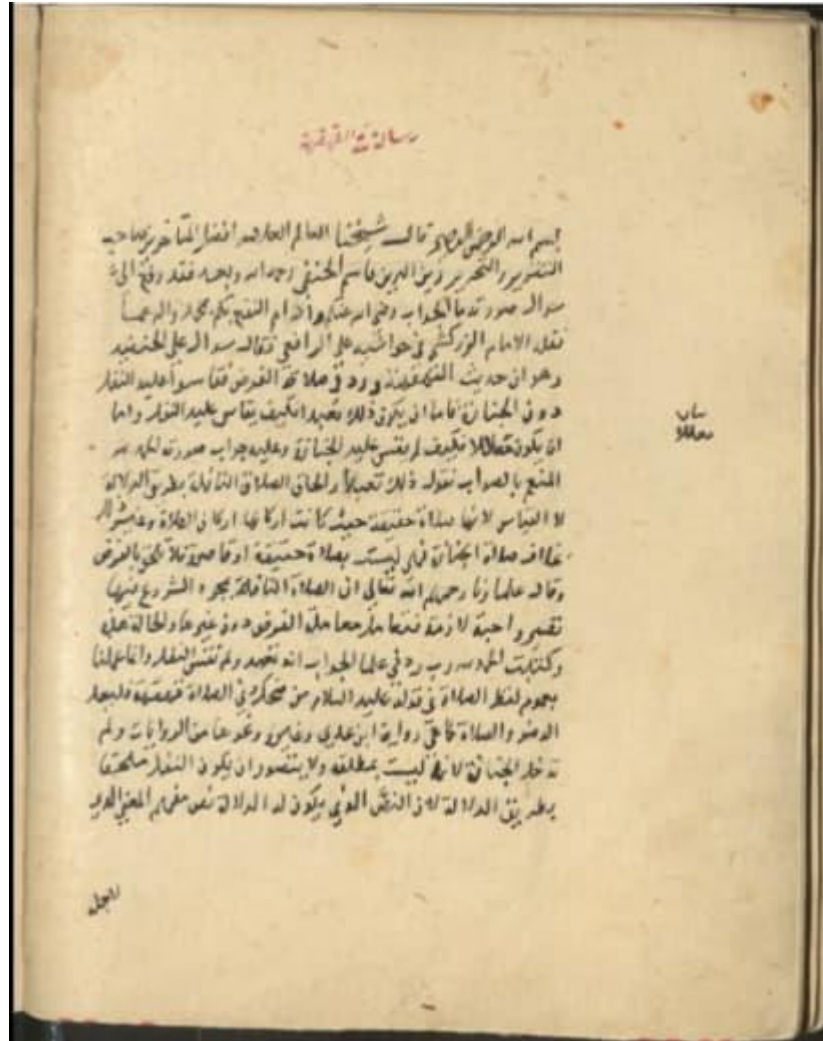 رسالة في القهقهة
بسم الله الرحمن الرحيم قال شيخنا العالم العلامة افضل المتأخرين صاحب
التقرير والتحرير زين الدين قاسم الحنفي رحمه الله وبعد فقد رفع الي
سوال صورته ما الجواب رضي الله عنكم وادام النفع بكم
نقل الامام الزركشي في حواشيه علي الرافعي فقال سوال علي الحنفية
وهو ان حديث القهقهة ورد في صلاة الفرض فقاسوا عليه النفل
دون الجنازة فاما ان يكون ذلك تعبدا فكيف يقاس عليه النفل واما
ان يكون معللا فكيف لم يقس عليه الجنازة وعليه جواب صورته الحمد لله
بالصواب نقول ذلك تعبدا والحاق الصلاة النافلة بطريق الدلالة
لا القياس لانها صلاة حقيقة حيث كانت اركانها اركان الصلاة
بخلاف صلاة الجنازة فهي ليست بصلاة حقيقة او قاصرة فلا تلحق بالفرض
وقال علماؤنا رحمهم الله تعالى ان الصلاة النافلة بمجرد الشروع فيها
تصير واجبة لازمة فتعامل معاملة الفرض دون غيرها والحالة هذه
وكتبت الحمد لله رب زدني علما الجواب انه تعبد ولم نقس النفل وانما عملنا
بعموم لفظ الصلاة في قوله عليه السلام من ضحك في الصلاة قهقهة فليعد
الوضو والصلاة كما في رواية ابن عدي وغيره ونحوها من الروايات ولم
تدخل الجنازة لانها ليست بمطلقه ولا يتصور ان يكون النفل ملحقا
بطريق الدلالة لان النص الذي يكون له الدلالة نص مفهم المعنى الذي
بيان
معللا
لاجله